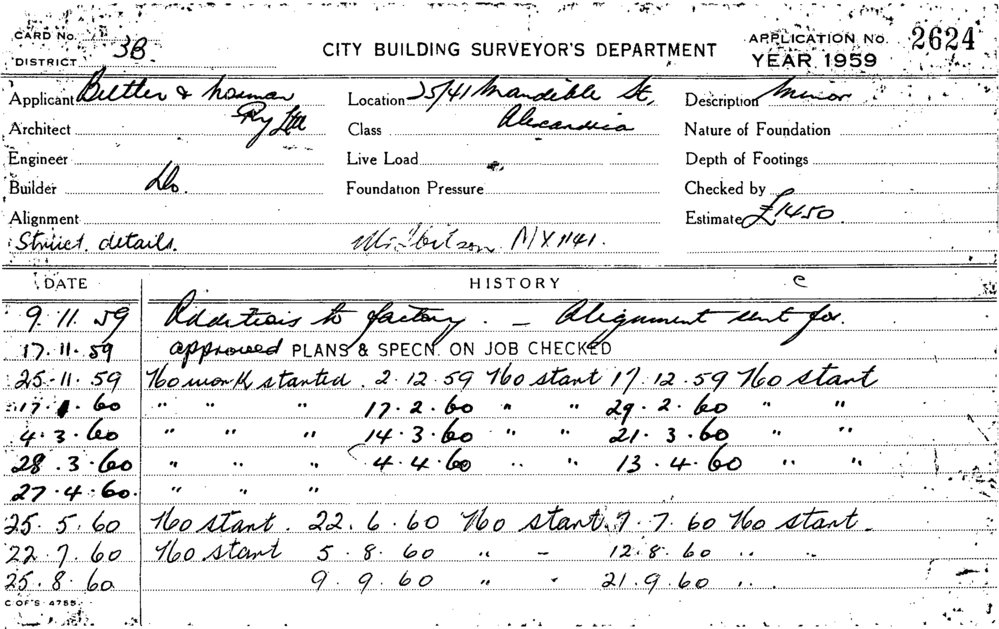 CARD No.
DISTRICT 3B.
CITY BUILDING SURVEYOR'S DEPARTMENT
APPLICATION No. 2624
YEAR 1959
Applicant Butler & Norman Pty Ltd
Location 25/41 Mandible St, Alexandria
Description Minor
Architect
Class
Nature of Foundation
Engineer
Live Load
Depth of Footings
Builder Do.
Foundation Pressure
Checked by
Alignment
Estimate £1450.
Struct. details. MX1141.
DATE HISTORY c
9.11.59 Additions to factory. – Alignment sent for.
17.11.59 approved PLANS & SPECN. ON JOB CHECKED
25.11.59 No work started. 2.12.59 No start 17.12.59 No start
17.1.60 " " " 17.2.60 " " 29.2.60 " "
4.3.60 " " " 14.3.60 " " 21.3.60 " "
28.3.60 " " " 4.4.60 " " 13.4.60 " "
27.4.60. " " "
25.5.60 No start. 22.6.60 No start. 7.7.60 No start.
22.7.60 No start 5.8.60 " – 12.8.60 " "
25.8.60 9.9.60 " " 21.9.60 "
C OF S 4755